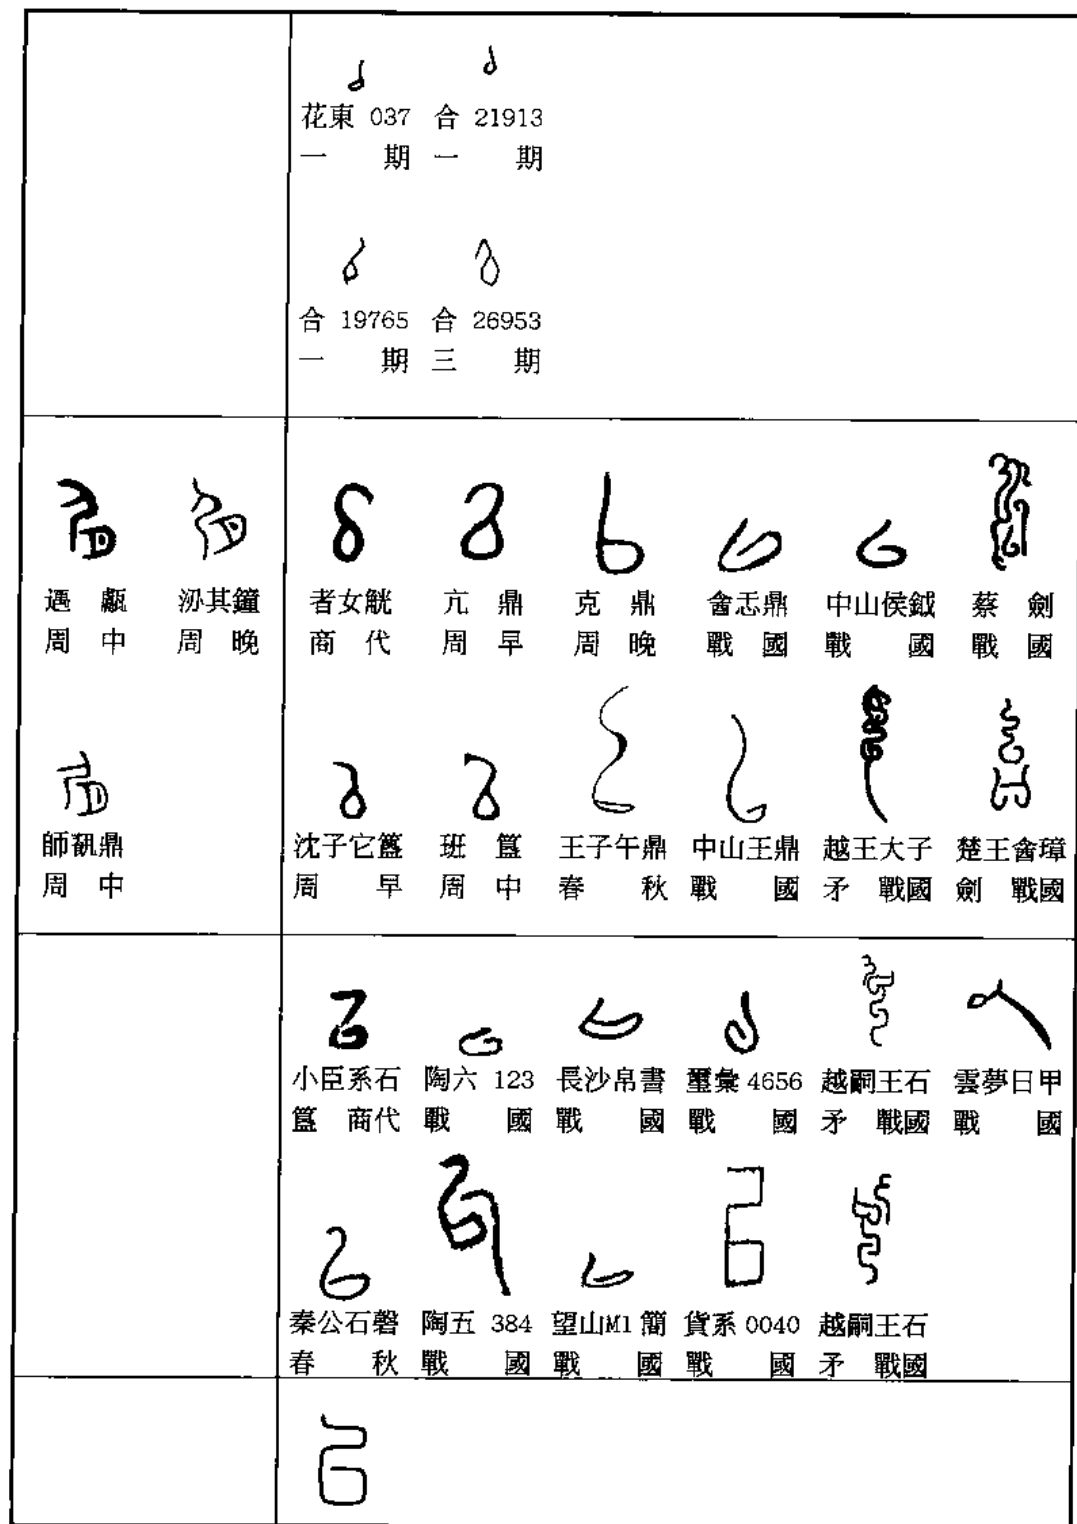 花東 037 合 21913
一 期 一 期
合 19765 合 26953
一 期 三 期
遇甗 㳑其鐘 者女觥 亢鼎 克鼎 酓忎鼎 中山侯鉞 蔡劍
周中 周晚 商代 周早 周晚 戰國 戰國 戰國
師𩛥鼎 沈子它簋 班簋 王子午鼎 中山王鼎 越王大子 楚王酓璋
周中 周早 周中 春秋 戰國 矛 戰國 劍 戰國
小臣系石 陶六 123 長沙帛書 璽彙 4656 越嗣王石 雲夢日甲
簋 商代 戰國 戰國 戰國 矛 戰國 戰國
秦公石磬 陶五 384 望山M1簡 貨系 0040 越嗣王石
春秋 戰國 戰國 戰國 矛 戰國